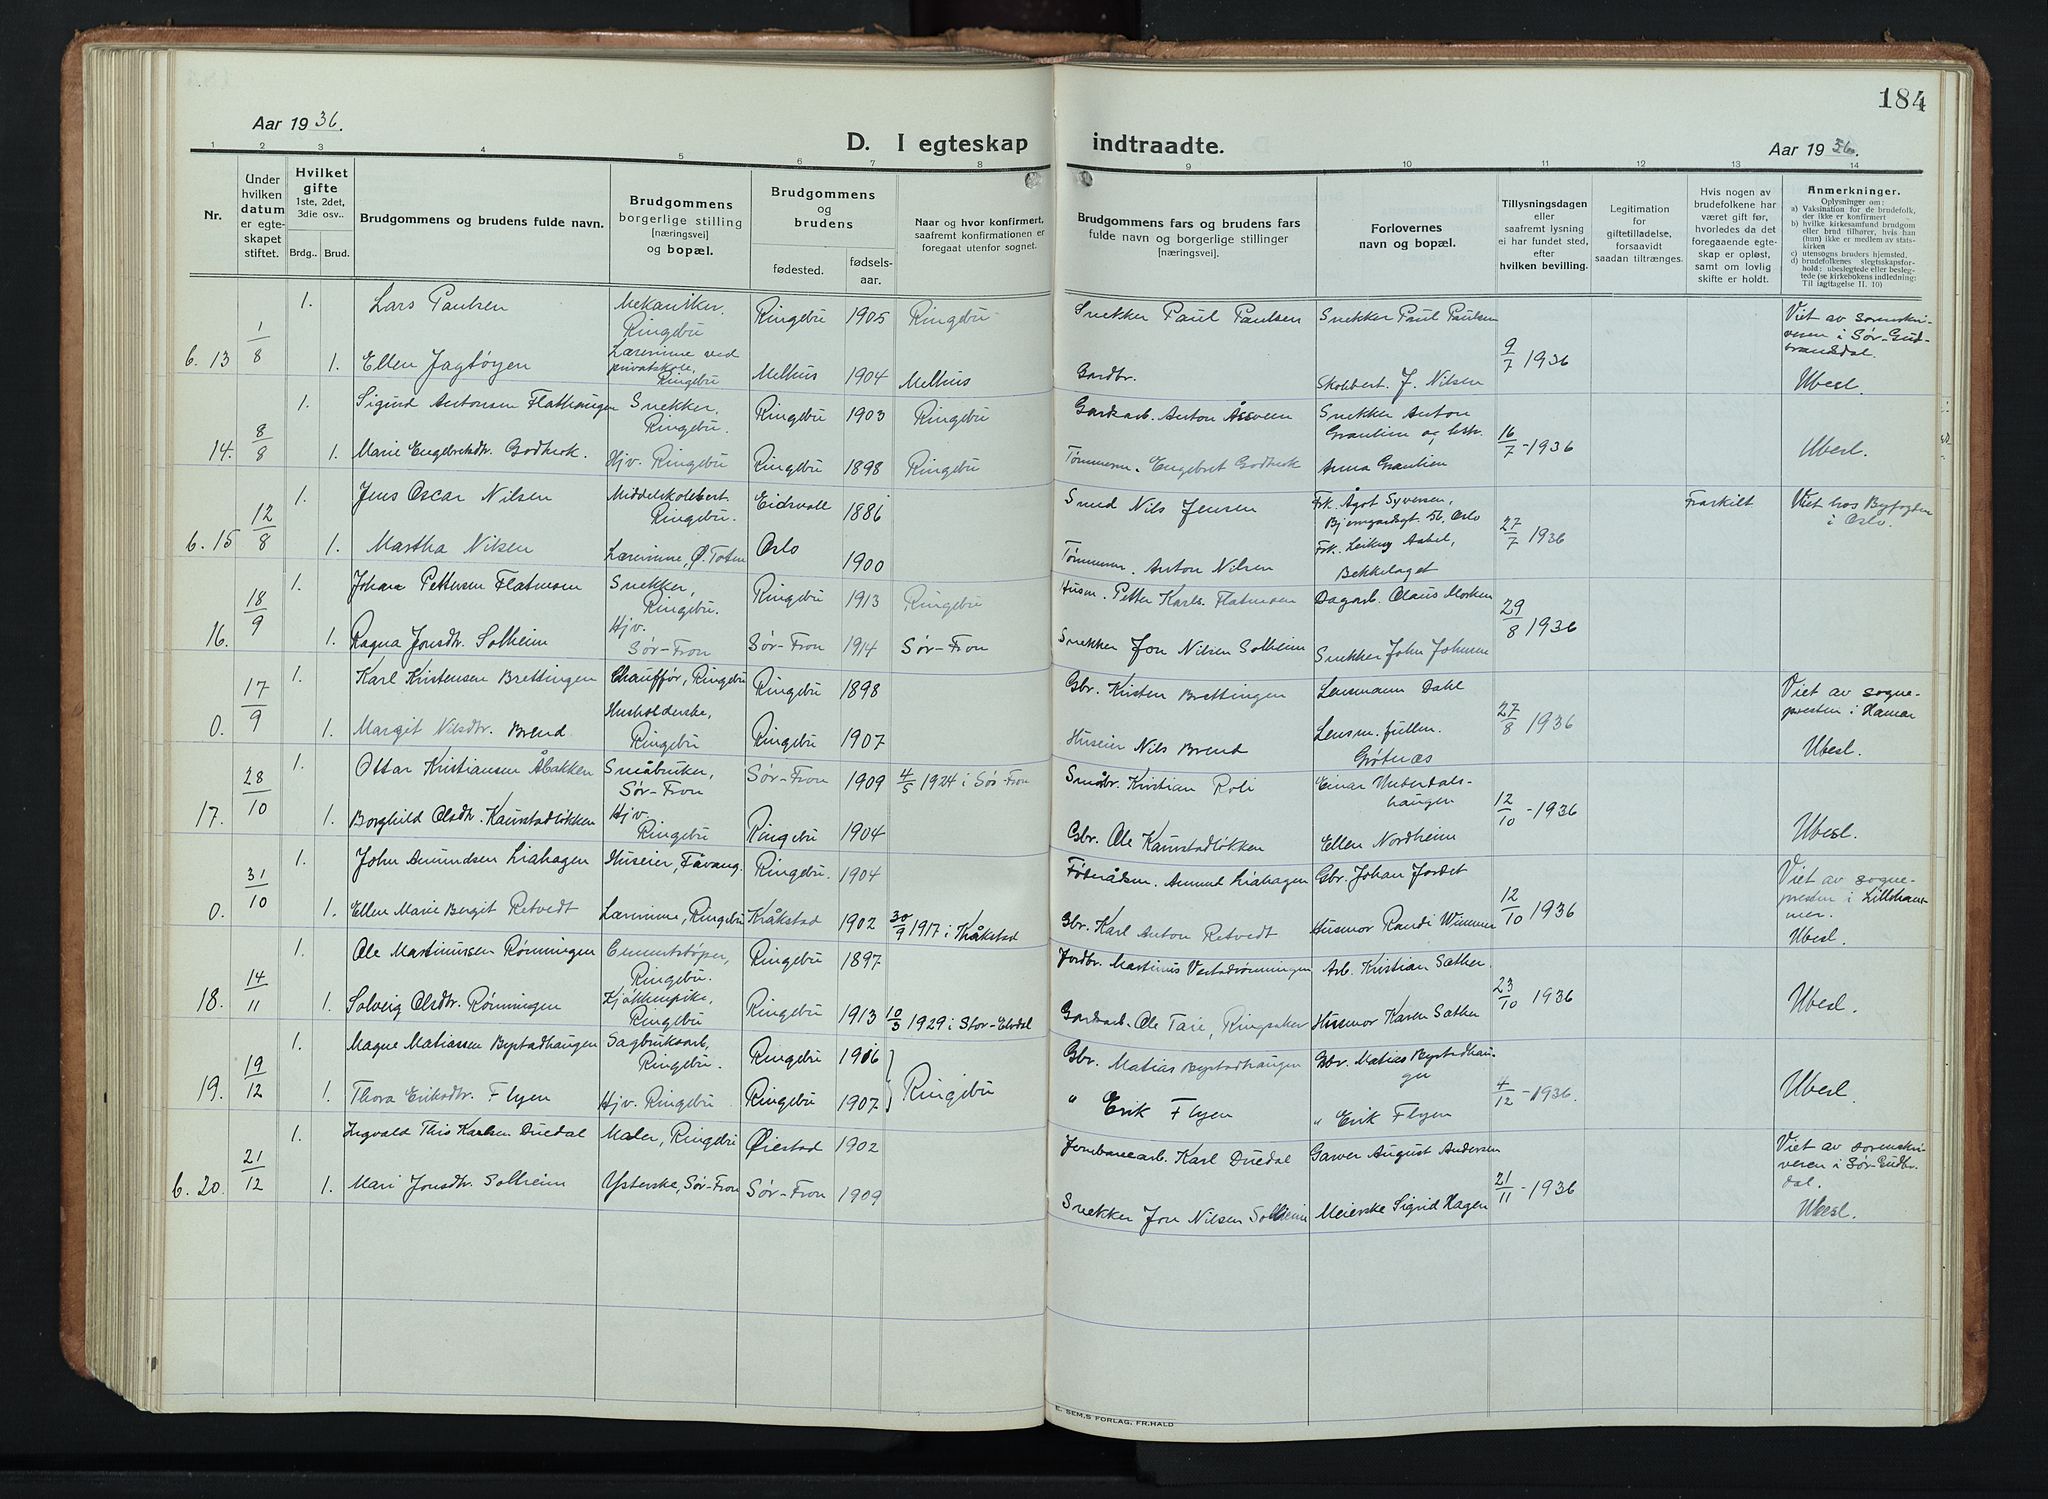 184
Aar 1936.
D. I egteskap indtraadte.
Aar 1936.
1 2 3 4 5 6 7 8 9 10 11 12 13 14
Nr.
Under hvilken datum er egte- skapet stiftet.
Hvilket gifte 1ste, 2det, 3die osv..
Brdg.. Brud.
Brudgommens og brudens fulde navn.
Brudgommens borgerlige stilling [næringsvei] og bopæl.
Brudgommens og brudens
fødested. fødsels- aar.
Naar og hvor konfirmert, saafremt konfirmationen er foregaat utenfor sognet.
Brudgommens fars og brudens fars fulde navn og borgerlige stillinger [næringsvei].
Forlovernes navn og bopæl.
Tillysningsdagen eller saafremt lysning ei har fundet sted, efter hvilken bevilling.
Legitimation for giftetilladelse, forsaavidt saadan tiltrænges.
Hvis nogen av brudefolkene har været gift før, hvorledes da det foregaaende egte- skap er opløst, samt om lovlig skifte er holdt.
Anmerkninger.
Oplysninger om:
a) Vaksination for de brudefolk, der ikke er konfirmert
b) hvilke kirkesamfund brudgom eller brud tilhører, hvis han (hun) ikke er medlem av stats- kirken
c) utensogns bruders hjemsted.
d) brudefolkenes slegtsskapsfor- hold: ubeslegtede eller besleg- tede (se kirkebokens indledning: Til iagttagelse II. 10)
1. Lars Paulsen Mekaniker. Ringebu Ringebu 1905 Ringebu Snekker Paul Paulsen Snekker Paul Paulsen Viet av sorenskri- veren i Sør-Gud- bransdal.
b. 13 1/8 1. Ellen Jagtøyen Lærerinne ved privatskole, Ringebu Melhus 1904 Melhus Gardbr. Skolebest. J. Nilsen 9/7 1936 Ubesl.
1. Sigurd Antonsen Flathaugen Snekker, Ringebu. Ringebu 1903 Ringebu Gardsarb. Anton Åssveen Snekker Anton Graulien og hstr.
14. 8/8 1. Marie Engebretsdtr. Godtrok. Hjv. Ringebu Ringebu 1898 Ringebu Tømmerm. Engebret Godtrok Anna Graulien 16/7 - 1936 Ubesl.
1. Jens Oscar Nilsen Middelskolebest. Ringebu. Eidsvoll 1886 Smed Nils Jensen Frk. Ågot Syversen, Bjerregaardsgt. 56, Oslo Fraskilt Viet hos Byfogden i Oslo.
b. 15 12/8 1. Martha Nilsen Lærerinne, Ø. Toten Oslo 1900 Tømmerm. Anton Nilsen Frk. Leikny Aabel, Bekkelaget 27/7 1936
1. Johan Pettersen Flatmoen Snekker, Ringebu. Ringebu 1913 Ringebu Husm. Petter Karls. Flatmoen Dagarb. Olaus Moshen
16. 18/9 1. Ragna Jonsdtr. Solheim Hjv. Sør-Fron Sør-Fron 1914 Sør-Fron Snekker Jon Nilsen Solheim Snekker John Johnsen 29/8 1936
1. Karl Kristensen Brettingen Chauffør, Ringebu Ringebu 1898 Gbr. Kristen Brettingen Lensmann Dahl Viet av sogne- presten i Hamar
0. 17/9 1. Margit Nilsdtr. Brend Husholderske, Ringebu Ringebu 1907 Huseier Nils Brend Lensm. fullm. Grøtnæs 27/8 1936 Ubesl.
1. Ottar Kristiansen Åbakken Småbruker, Sør-Fron Sør-Fron 1909 4/5 1924 i Sør-Fron Småbr. Kristian Roli Einar Unterdals- haugen
17. 28/10 1. Borghild Olsdtr. Kaunstadløkken Hjv. Ringebu Ringebu 1904 Gbr. Ole Kaunstadløkken Ellen Nordheim 12/10 - 1936 Ubesl.
1. John Amundsen Liahagen Huseier, Fåvang. Ringebu. 1904 Amund Liahagen Gbr. Johan Jordet Viet av sogne- presten i Lilleham- mer.
0. 31/10 1. Ellen Marie Bergit Retvedt Lærerinne, Ringebu Kråkstad 1902 30/9 1917 i Kråkstad Gbr. Karl Anton Retvedt Husmor Randi Wimmer 12/10 1936 Ubesl.
1. Ole Martinussen Rønningen Cementstøper, Ringebu. Ringebu 1897 Jordbr. Martinus Vestadrønningen Arb. Kristian Sæther.
18. 14/11 1. Solveig Olsdtr. Rønningen Kjøkkenpike, Ringebu Ringebu 1913 10/3 1929 i Stor-Elvdal Gardsarb. Ole Taie, Ringsaker Husmor Karen Sæther 23/10 1936 Ubesl.
1. Magne Matiassen Bystadhaugen Sagbruksarb. Ringebu. Ringebu 1906 Gbr. Matias Bystadhaugen Gbr. Matias Bystadhau- gen
19. 19/12 1. Thora Eriksdtr. Flyen Hjv. Ringebu Ringebu 1907 Ringebu " Erik Flyen " Erik Flyen 4/12 - 1936. Ubesl.
1. Ingvald This Karlsen Duedal Maler, Ringebu Øiestad 1902 Jernbanearb. Karl Duedal Garver August Andersen Viet av sorenskri- veren i Sør-Gudbr. dal.
b. 20. 21/12 1. Mari Jonsdtr. Solheim Ysterske, Sør-Fron Sør-Fron 1909 Snekker Jon Nilsen Solheim Meierske Sigrid Hagen 21/11 - 1936 Ubesl.
E. SEM,S FORLAG, FR.HALD